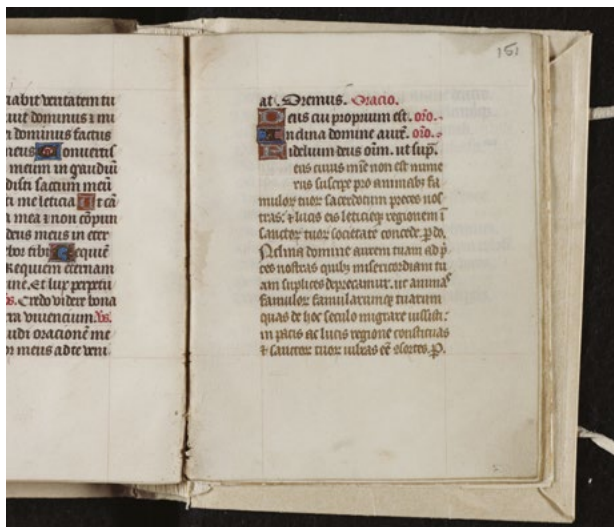 iabit veritatem tu
ivit dominus & mi
dominus factus
meus Convertis
meum in gaudiū
disti saccum meū
ti me leticia Ut cā
a mea & non cōpun
deus meus in eter
bor tibi Requiē
Requiem eternam
ine. Et lux perpetu
Credo videre bona
ra vivencium.
udi orationē me
meus ad te veni
151
at. Oremus. Oracio.
Deus cui proprium est. orō.
Inclina domine aurē. orō.
Fidelium deus oīm. ut sup̄.
eus cuius mīe non est nume
rus suscipe pro animabꝫ fa
mulorꝝ tuorꝝ sacerdotum preces nos
tras: & lucis eis leticieqꝫ regionem ī
sanctorꝝ tuorꝝ societate concede. p̄ do.
Nclina domine aurem tuam ad p̄
ces nostras quibꝫ misericordiam tu
am suplices deprecamur. ut animaˢ
famulorꝝ famularumqꝫ tuarum
quas de hoc seculo migrare iussisti:
in pacis ac lucis regione constituas
& sanctorꝝ tuorꝝ iubeas eē ɔsortes. P̄.